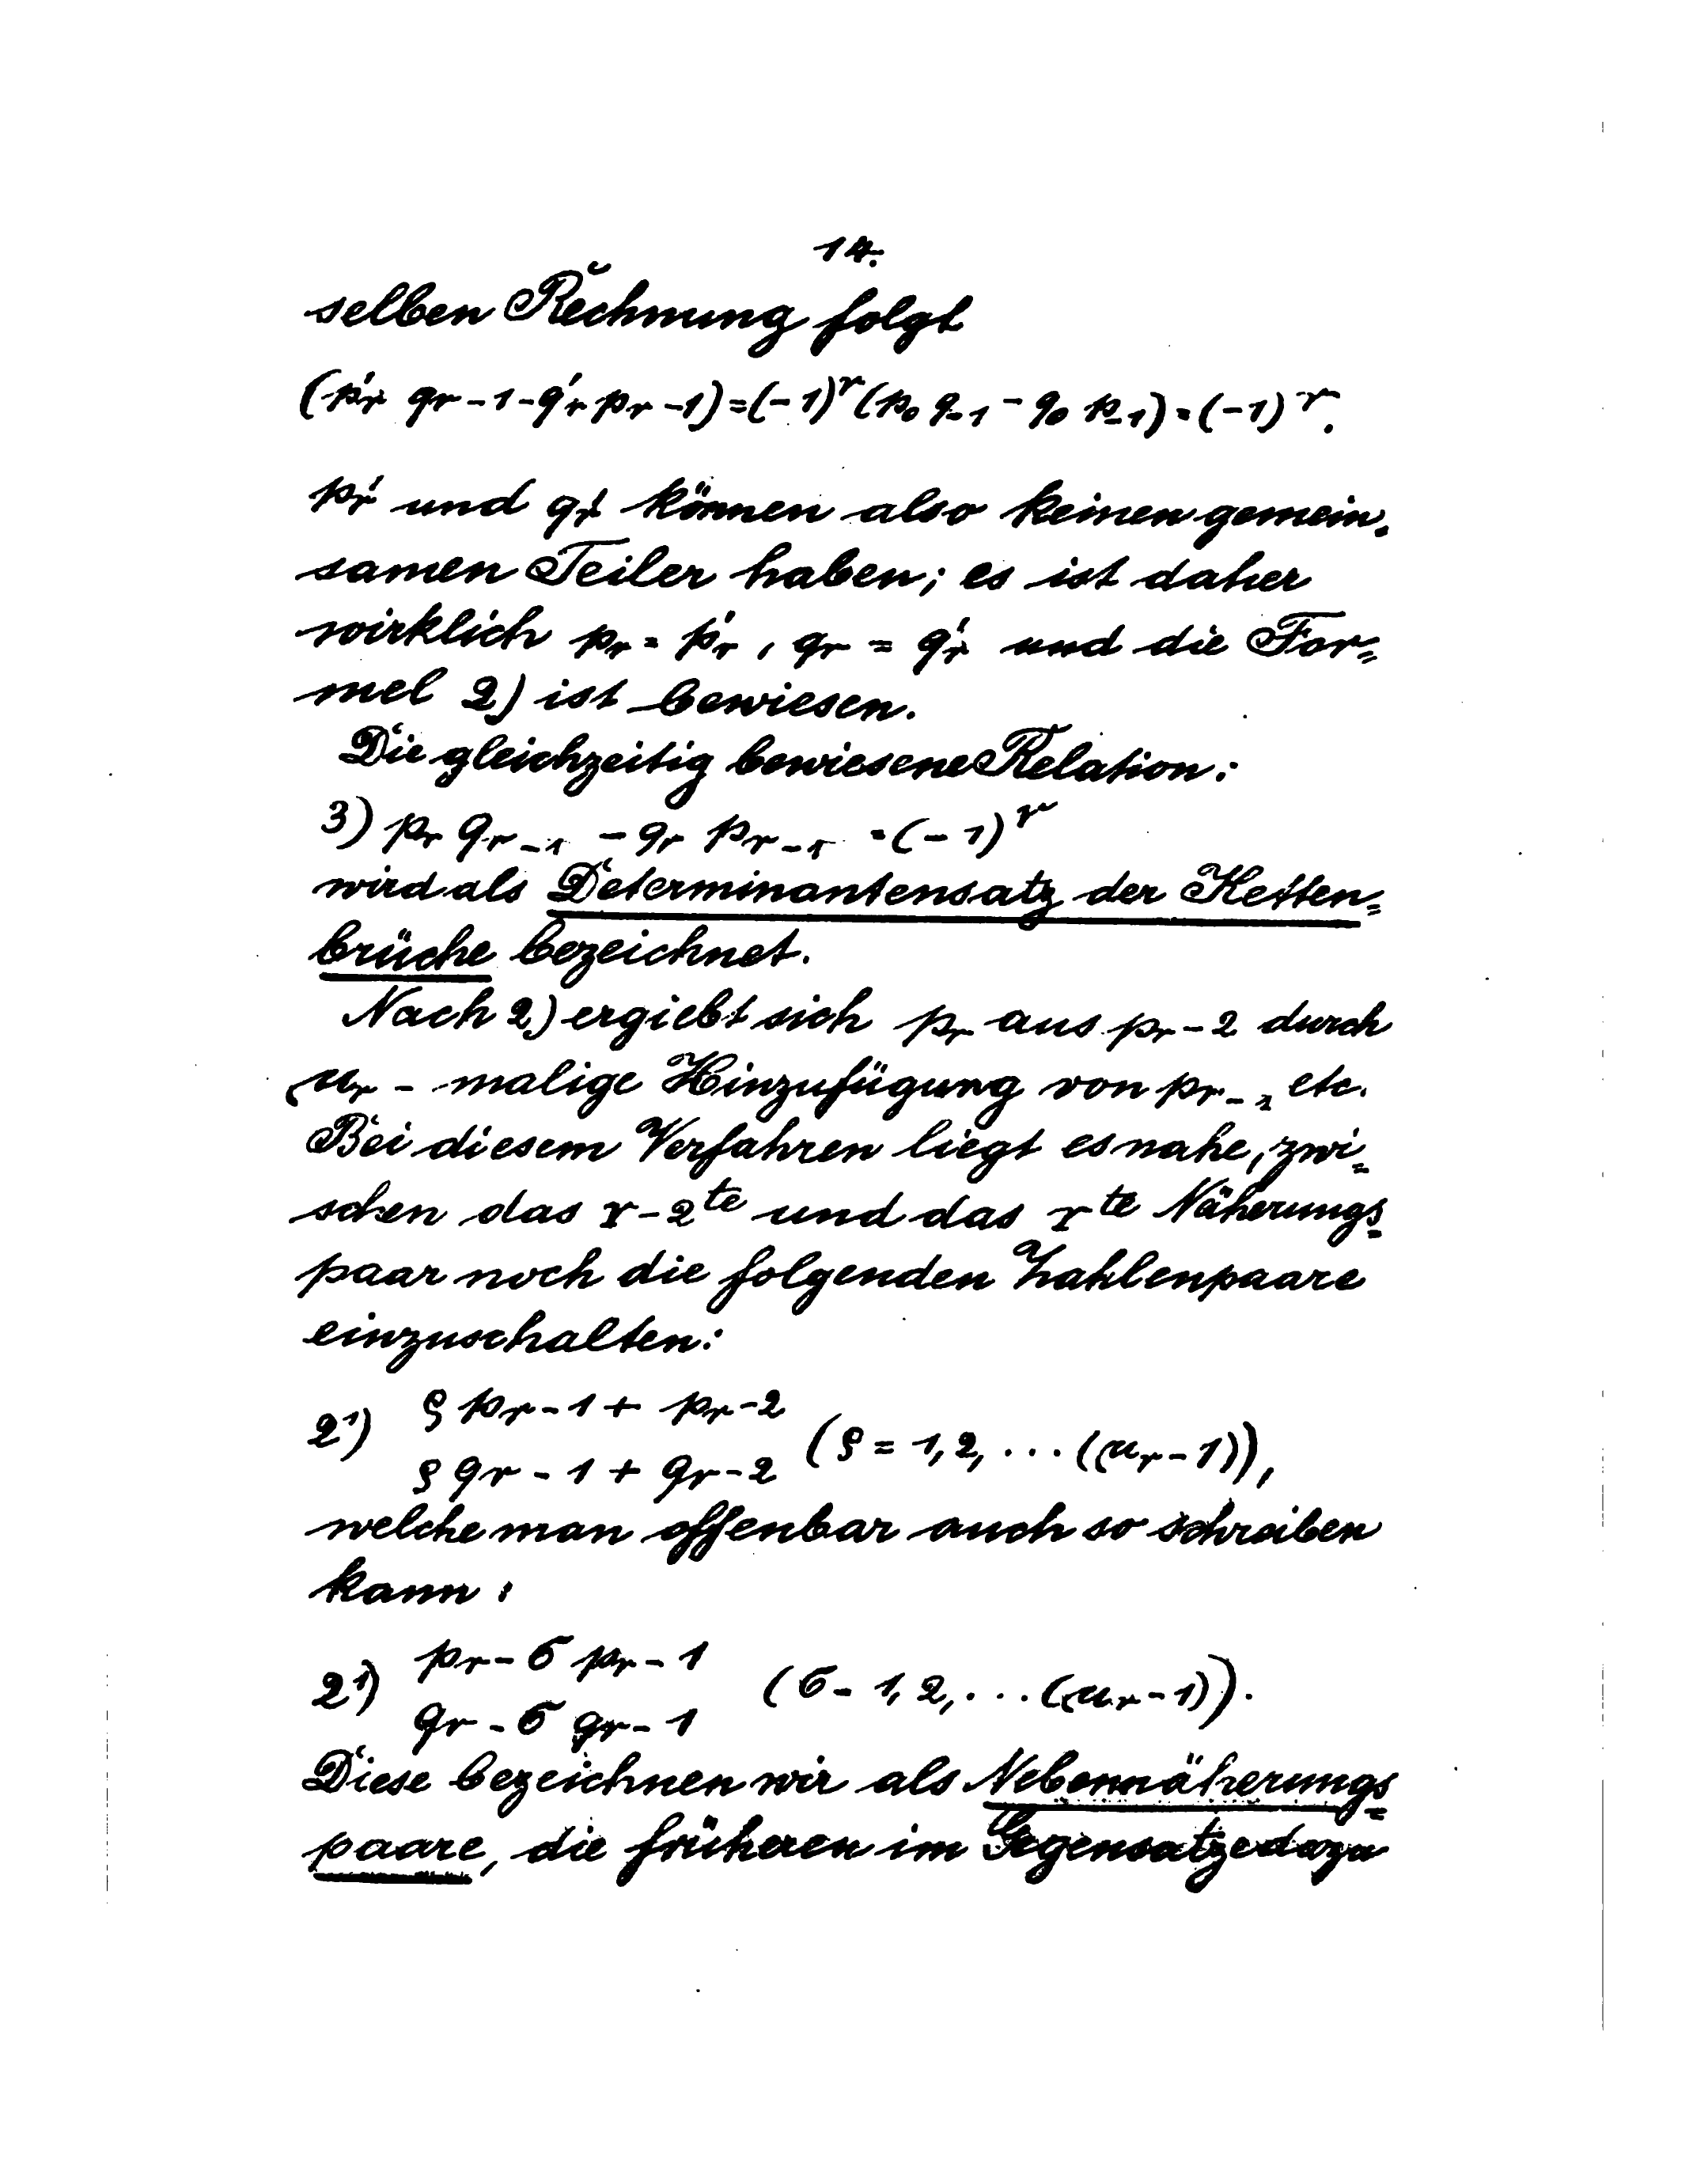 14.
selben Rechnung folgt
(p'r qr-1-q'r pr-1)=(-1)^r (p0 q-1 - q0 p-1)=(-1)^r.
pr' und qr' können also keinen gemein=
samen Teiler haben; es ist daher
wirklich pr = p'r, qr = q'r und die For=
mel 2) ist bewiesen.
Die gleichzeitig bewiesene Relation:
3) pr qr-1 - qr pr-1 = (-1)^r
wird als Determinantensatz der Ketten=
brüche bezeichnet.
Nach 2) ergiebt sich pr aus pr-2 durch
μr - malige Hinzufügung von pr-1 etc.
Bei diesem Verfahren liegt es nahe, zwi=
schen das r-2te und das rte Näherungs=
paar noch die folgenden Zahlenpaare
einzuschalten:
2') ϱ pr-1 + pr-2
ϱ qr-1 + qr-2 (ϱ = 1, 2, ... (μr-1)),
welche man offenbar auch so schreiben
kann:
2') pr - σ pr-1
qr - σ qr-1 (σ = 1, 2, ... (μr-1)).
Diese bezeichnen wir als Nebennäherungs=
paare, die früheren im Gegensatze dazu